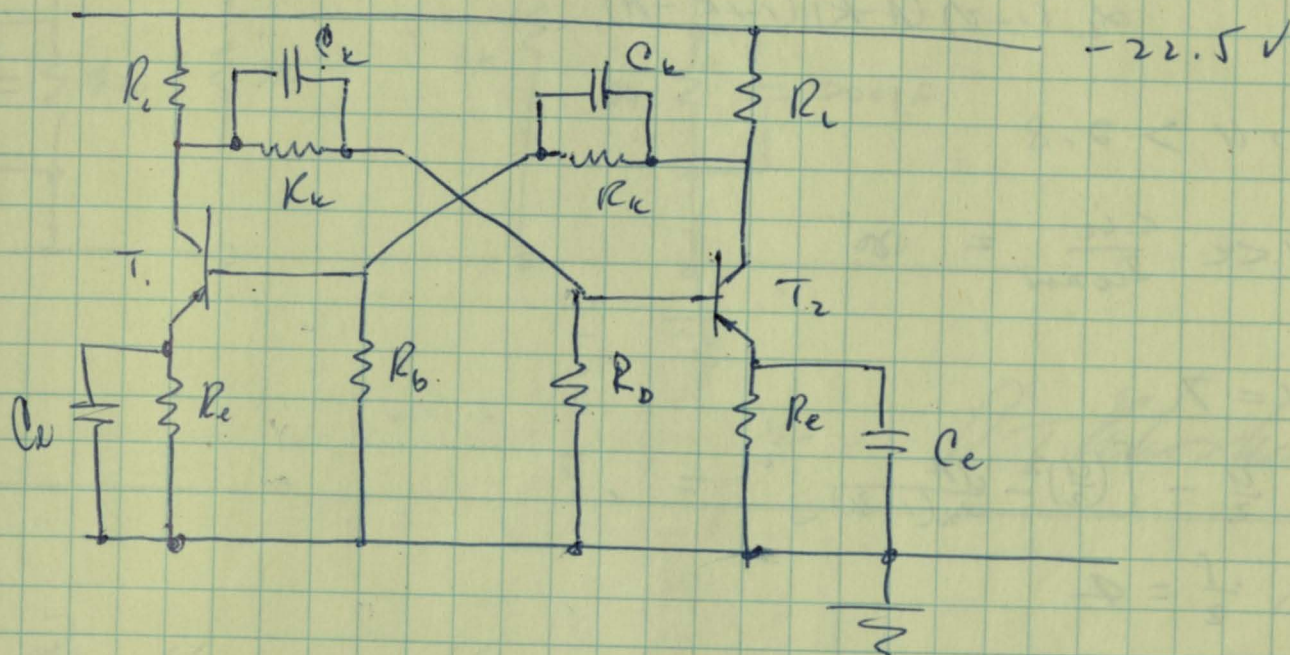 -22.5 V
C_k
C_k
R_L
R_L
R_k
R_k
T_1
T_2
R_b
R_b
R_e
R_e
C_e
C_e